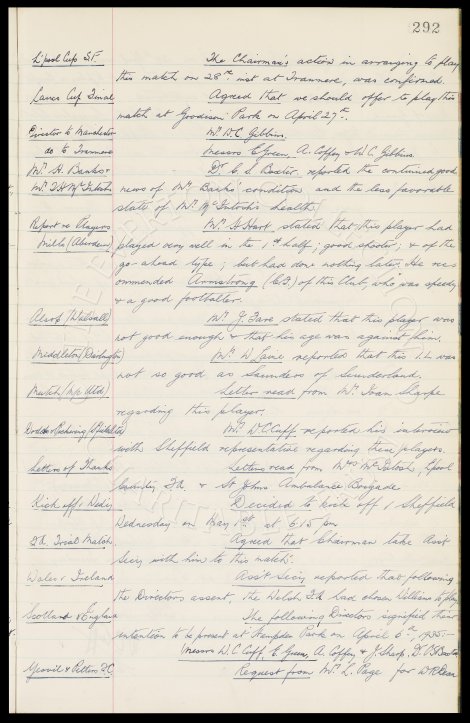 292
L'pool Cup S.F. The Chairman's action in arranging to play
this match on 28th inst at Tranmere, was confirmed.
Lancs Cup Final Agreed that we should offer to play this
match at Goodison Park on April 27th.
Director to Manchester Mr. W.C. Gibbins.
do to Tranmere Messrs E. Green, A. Coffey & W.C. Gibbins.
Mr. H. Banks & Dr. C.S. Baxter reported the continued good
Mr. T.H. McIntosh news of Mr. Banks' condition and the less favorable
state of Mr. McIntosh's health.
Report re Players Mr. H. Hart stated that this player had
Mills (Aberdeen) played very well in the 1st half; good shooter; & of the
go-ahead type; but had done nothing later. He rec-
ommended Armstrong (C.F.) of this Club, who was speedy
& a good footballer.
Alsop (Walsall) Mr. J. Fare stated that this player was
not good enough & that his age was against him.
Middleton (Darlington) Mr. W. Lane reported that this I.L. was
not so good as Saunders of Sunderland.
Mutch (M/c Utd) Letter read from Mr. Ivan Sharpe
regarding this player.
Pickering (Sheffield Utd) Mr. W.C. Cuff reported his interview
with Sheffield representative regarding these players.
Letters of Thanks Letters read from Mrs McIntosh, L'pool
County F.A. & St Johns Ambulance Brigade
Kick off v Wedy Decided to kick off v Sheffield
Wednesday on May 1st at 6.15 pm
F.A. Trial Match Agreed that Chairman take Asst
Secy with him to this match.
Wales v Ireland Asst Secy reported that following
the Directors assent, the Welsh F.A. had chosen Williams to play
Scotland v England The following Directors signified their
intention to be present at Hampden Park on April 6th, 1935:-
Messrs W.C. Cuff, E. Green, A. Coffey & J. Sharp, Dr. C.S. Baxter
Yeovil & Petters F.C. Request from Mr. L. Page for W.R. Dean